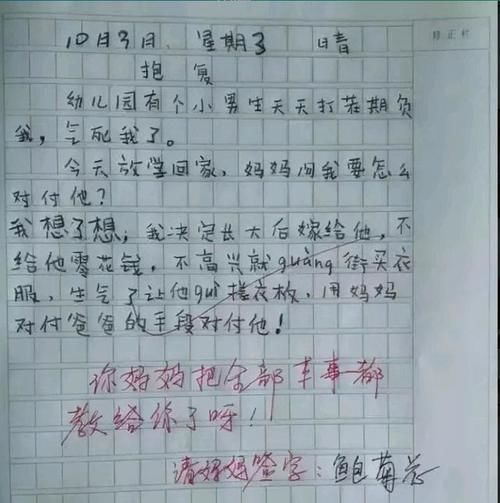 10月3日. 星期3 晴
抱复
幼儿园有个小男生天天打茬期负
我,气死我了。
今天放学回家,妈妈问我要怎么
对付他?
我想了想,我决定长大后嫁给他,不
给他零花钱,不高兴就guàng街买衣
服,生气了让他guì搓衣板,用妈妈
对付爸爸的手段对付他!
你妈妈把全部本事都
教给你了呀!
请妈妈签字:鲍菊芯
修正栏